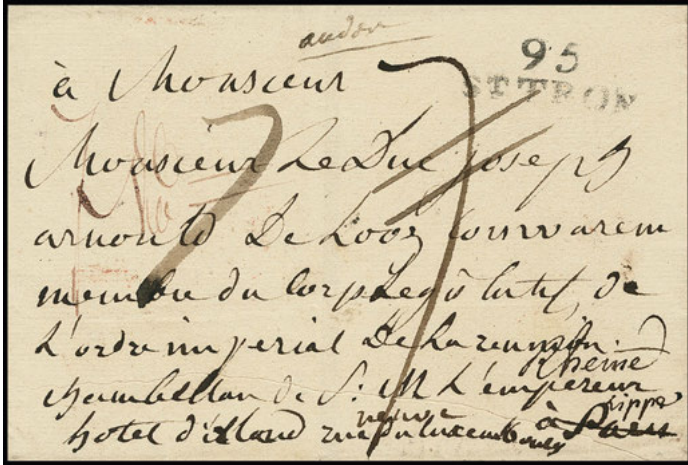 95
ST TRON
à Monsieur
Monsieur Le Duc joseph
arnould De Looz Corswarem
membre du Corps Legislatif, de
L'ordre imperial De La reunion.
chambellan de S: M L'empereur
rheine
hotel d'illand rue neuve du luxembourg
à Paris